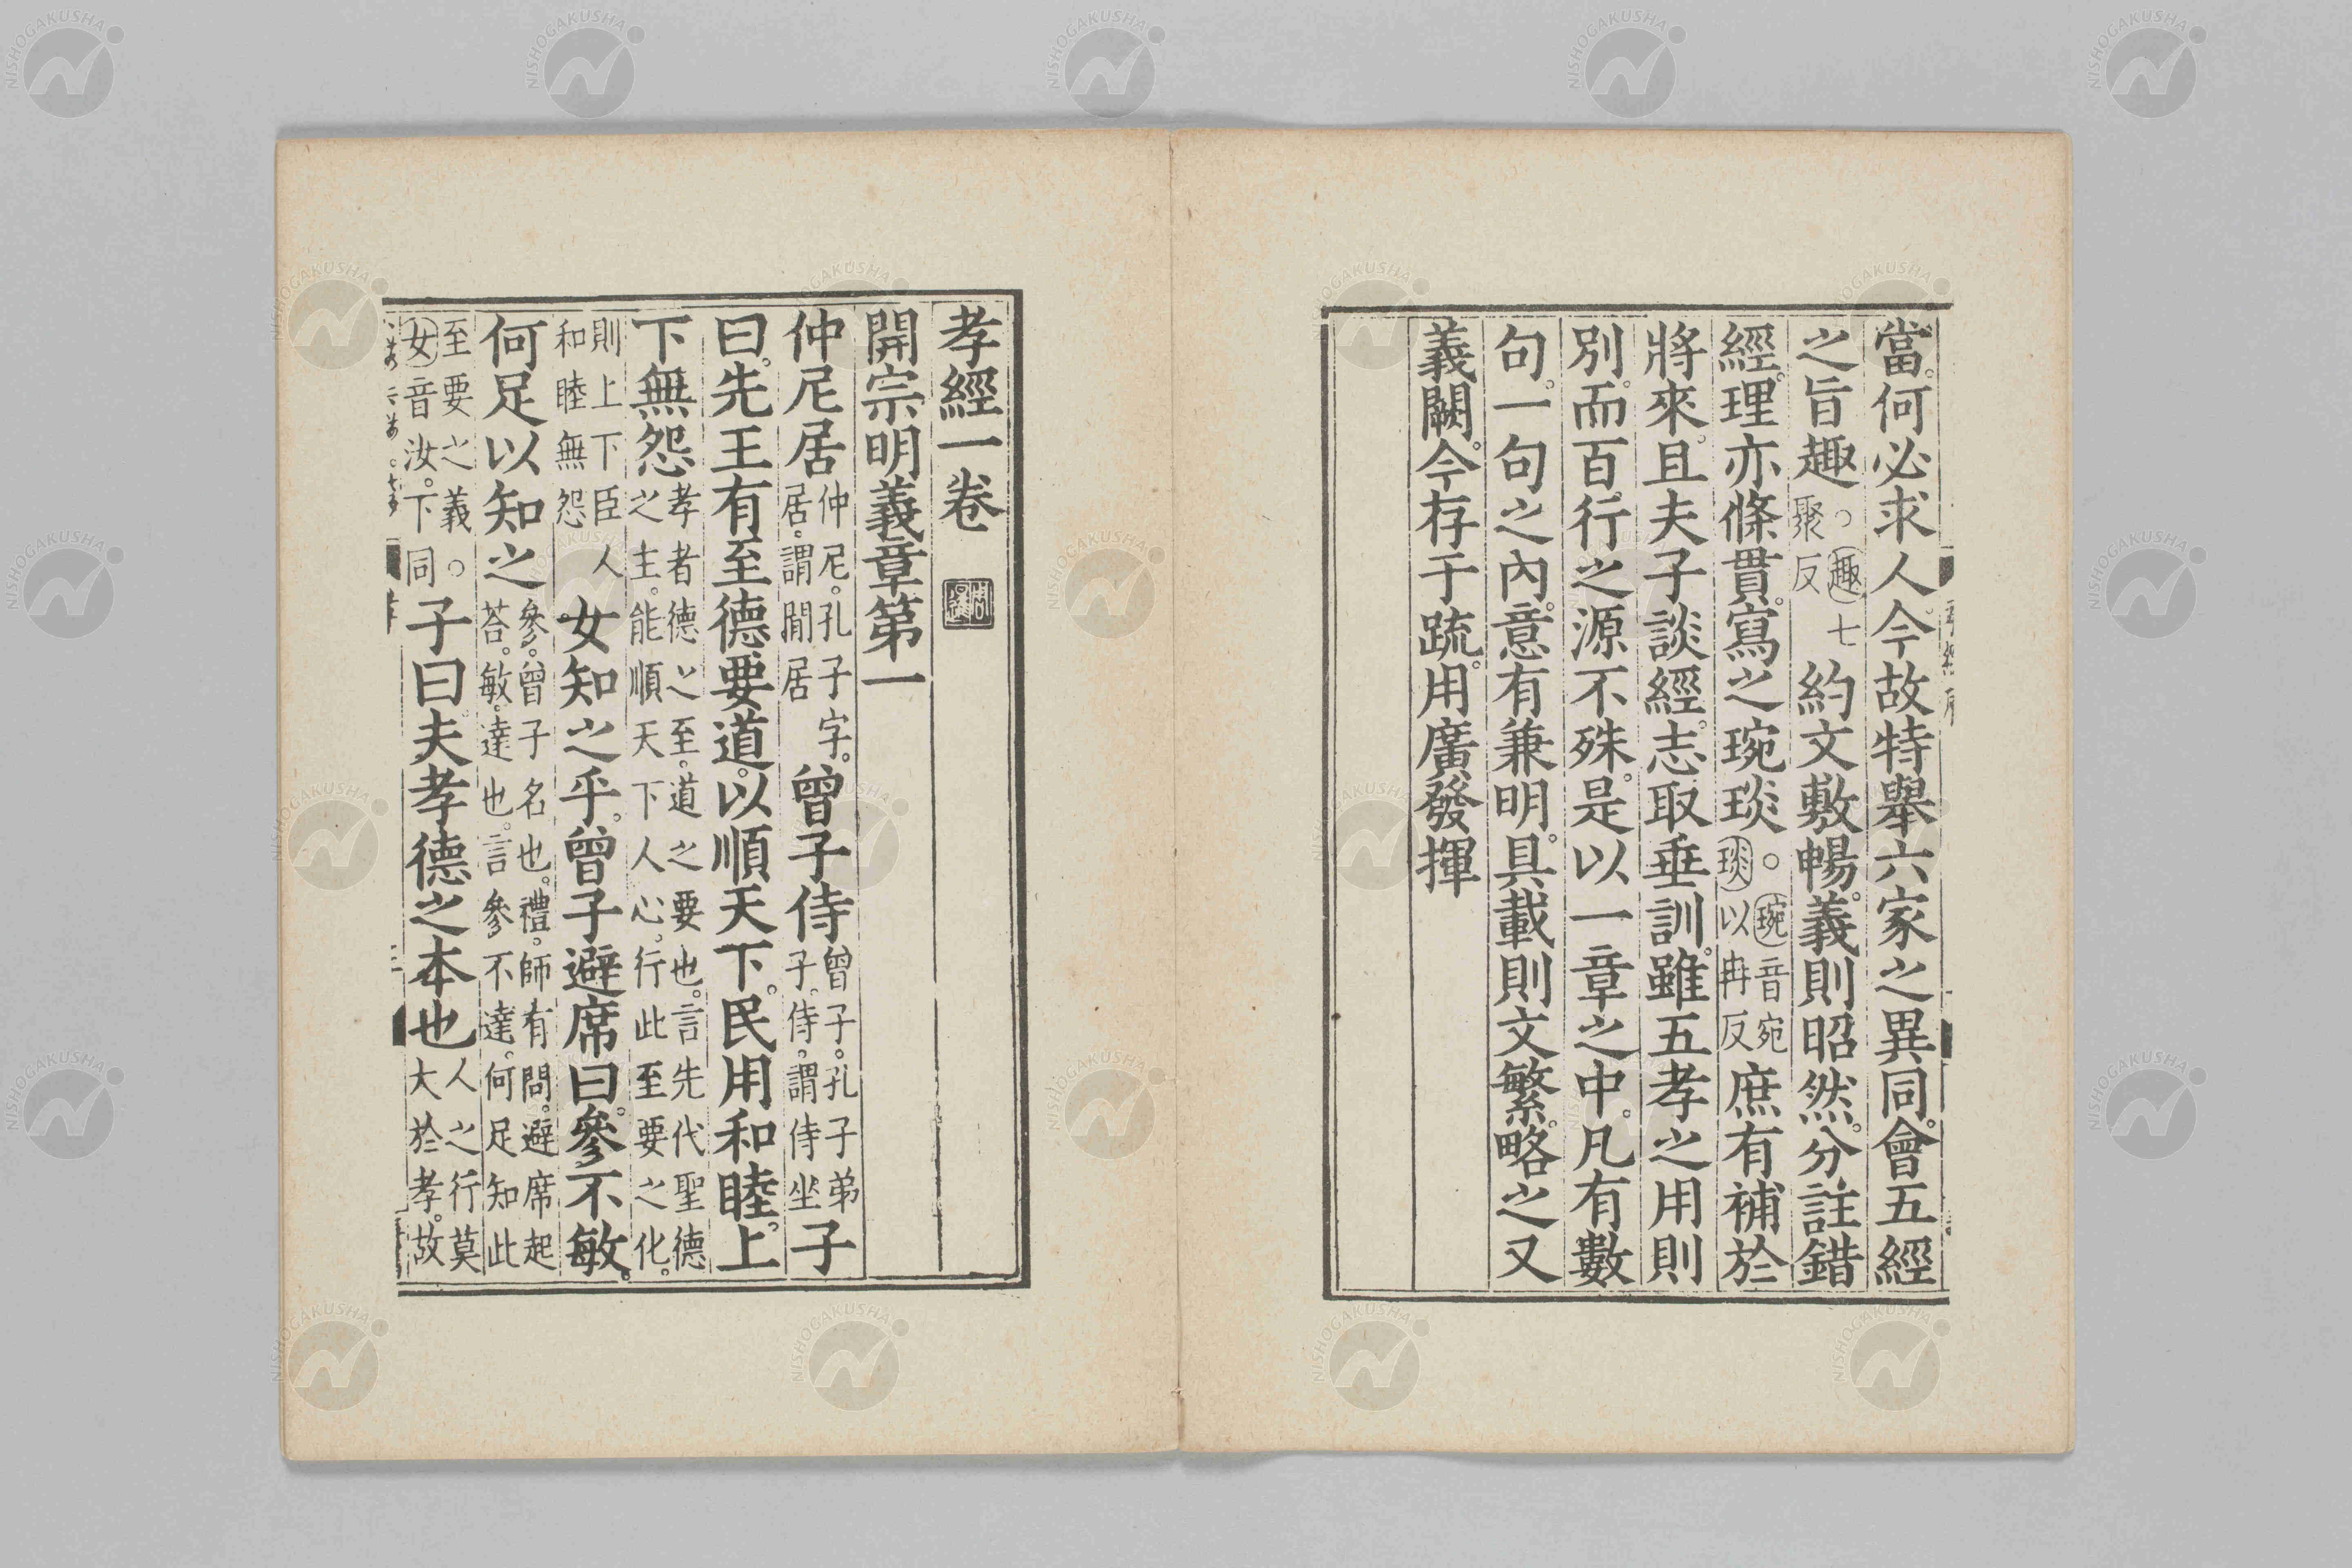 當。何必求人。今故特舉六家之異同。會五經
之旨趣○趣七聚反約文敷暢。義則昭然。分註錯
經。理亦條貫。寫之琬琰○琬音宛琰以冉反庶有補於
將來。且夫子談經。志取垂訓。雖五孝之用則
別。而百行之源不殊。是以一章之中。凡有數
句。一句之內。意有兼明。具載則文繁。略之又
義闕。今存于疏。用廣發揮
孝經一卷
開宗明義章第一
仲尼居仲尼。孔子字。居。謂閒居曾子侍曾子。孔子弟子。侍。謂侍坐子
曰。先王有至德要道。以順天下。民用和睦。上
下無怨孝者德之至。道之要也。言先代聖德之主。能順天下人心。行此至要之化。
則上下臣人和睦無怨女知之乎。曾子避席曰。參不敏。
何足以知之參。曾子名也。禮。師有問。避席起荅。敏。達也。言參不達。何足知此
至要之義○女音汝。下同子曰夫孝德之本也人之行莫大於孝。故
NISHOGAKUSHA